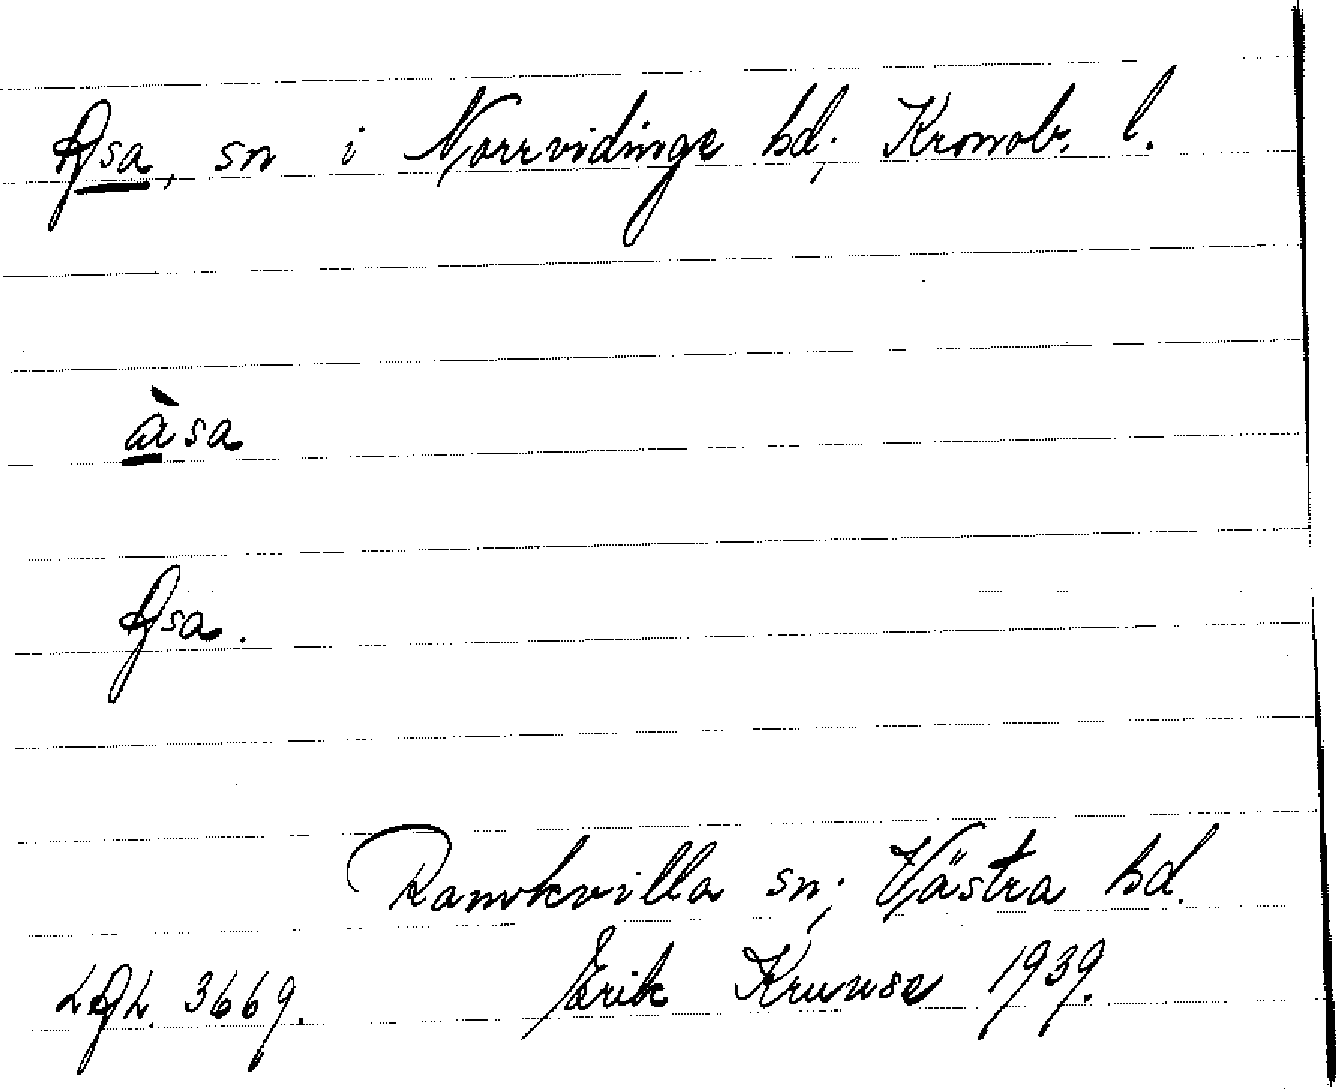 Asa, sn i Norrvidinge hd; Kronob. l.
àsa
Asa.
Ramkvilla sn; Västra hd.
LAL. 3669. Erik Kruuse 1939.